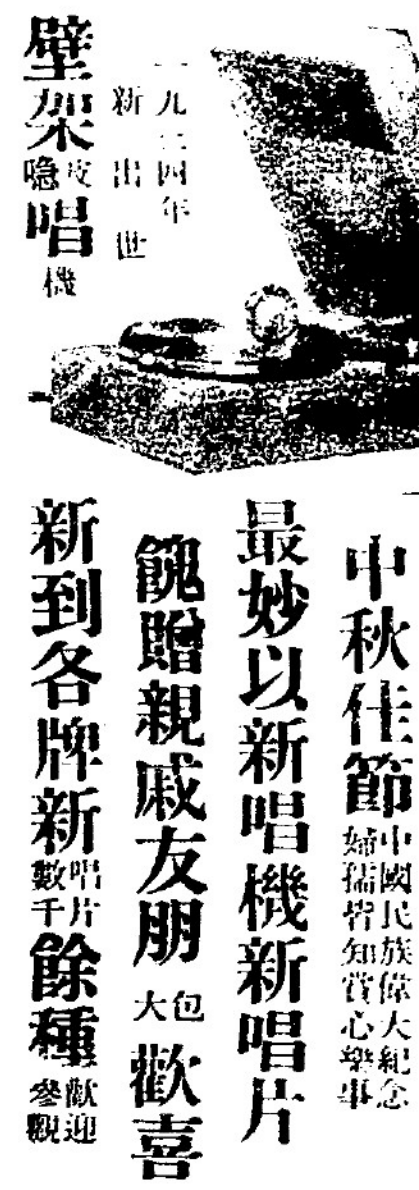 一九三四年
新出世
壁架皮喼唱機
中秋佳節中國民族偉大紀念婦孺皆知賞心樂事
最妙以新唱機新唱片
餽贈親戚友朋包大歡喜
新到各牌新唱片數千餘種歡迎參觀